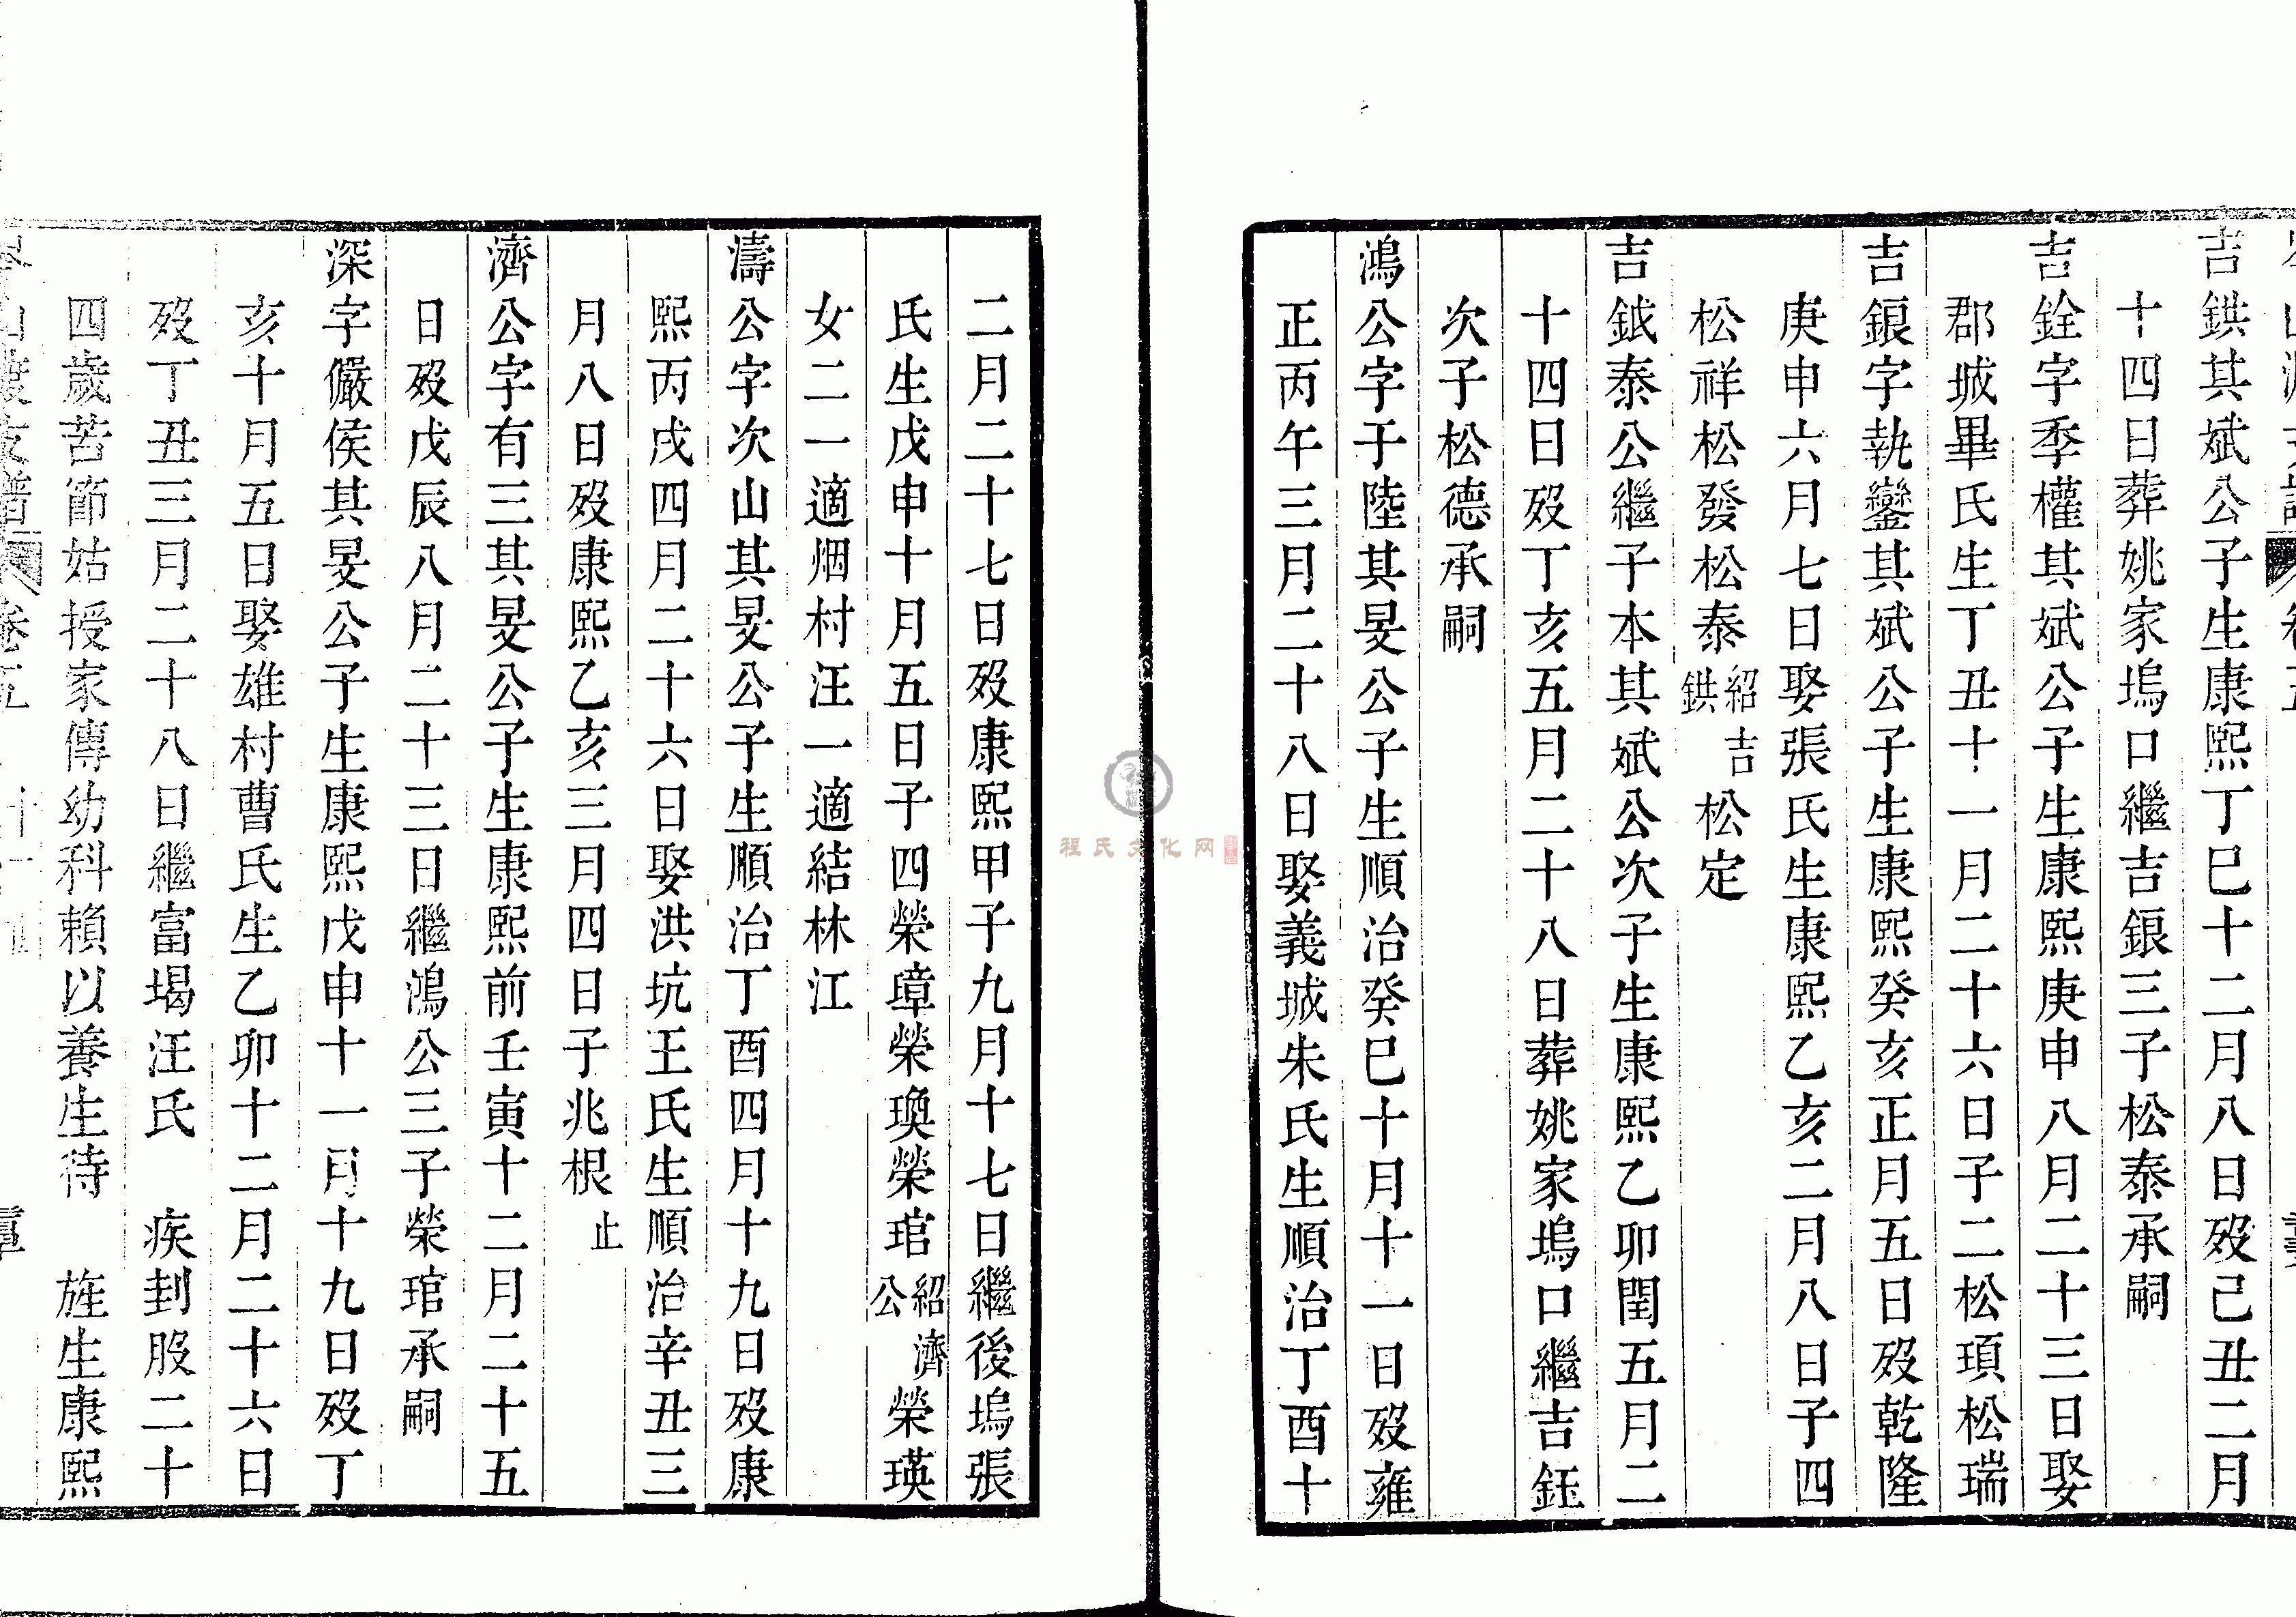 吉鉷其斌公子生康熙丁巳十二月八日歿己丑二月
十四日葬姚家塢口繼吉銀三子松泰承嗣
吉銓字季權其斌公子生康熙庚申八月二十三日娶
郡城畢氏生丁丑十一月二十六日子二松頊松瑞
吉銀字執鑾其斌公子生康熙癸亥正月五日歿乾隆
庚申六月七日娶張氏生康熙乙亥二月八日子四
松祥松發松泰紹吉鉷松定
吉鉞泰公繼子本其斌公次子生康熙乙卯閏五月二
十四日歿丁亥五月二十八日葬姚家塢口繼吉鈺
次子松德承嗣
鴻公字于陸其旻公子生順治癸巳十月十一日歿雍
正丙午三月二十八日娶義城朱氏生順治丁酉十
二月二十七日歿康熙甲子九月十七日繼後塢張
氏生戊申十月五日子四榮璋榮瑍榮琯紹濟公榮瑛
女二一適烟村汪一適結林江
濤公字次山其旻公子生順治丁酉四月十九日歿康
熙丙戌四月二十六日娶洪坑王氏生順治辛丑三
月八日歿康熙乙亥三月四日子兆根止
濟公字有三其旻公子生康熙前壬寅十二月二十五
日歿戊辰八月二十三日繼鴻公三子榮琯承嗣
深字儼侯其旻公子生康熙戊申十一月十九日歿丁
亥十月五日娶雄村曹氏生乙卯十二月二十六日
歿丁丑三月二十八日繼富堨汪氏 疾封股二十
四歲苦節姑授家傳幼科賴以養生待 旌生康熙
程氏文化网